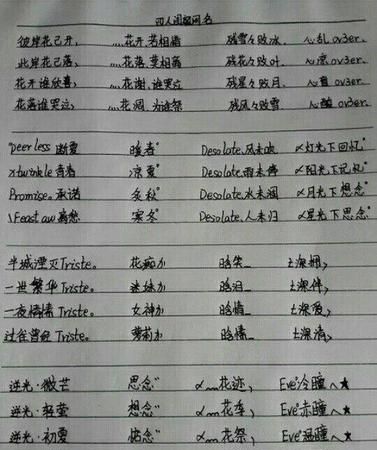 四人闺蜜网名
彼岸花已开, ....花开若相惜 残雪々败冰. 心乱 ov3er.
此岸花已落. ....花落.莫相离 残花々败叶. 心凉 ov3er.
花开谁欣喜, ....花谢.谁哭泣 残星々败月. ov3er.
花落谁哭泣, ....花凋.为谁祭 残风々败雪. 心酸 ov3er.
°Peerless 暖者° Desolate.风未吹 ∝灯光下回忆°
×twinkle 青春 凉夏° Desolate.雨未停 ∝阳光下记忆°
Promise。承诺 冬秋° Desolate.水未凋 ∝月光下想念°
\Feast aw 离愁 寒冬° Desolate.人未归 ∝星光下思念°
半城湮灭Triste。 花痴か 晗笑_ 七深拥,
一世繁华Triste。 迷妹か 晗泪_ 七深伴,
一夜情愫Triste。 女神か 晗情_ 七深爱,
过往曾经Triste。 萝莉か 晗情_ 七深情,
逆光·微芒 思念" ∝...花迹, Eve°冷瞳へ★
逆光·轻萤 想念" ∝...花季, Eve°赤瞳へ★
逆光·初夏 惦念" ∝...花祭, Eve°温瞳へ★